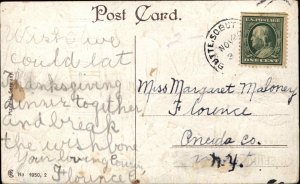 Post Card.
Wish we
could eat
Thanksgiving
dinner together
and break
the wishbone
Your loving
Florence
No 1850, 2
BUTTE,
NOV
U.S. POSTAGE
ONE CENT
Miss Margaret Maloney
Florence
Oneida Co.
N.Y.